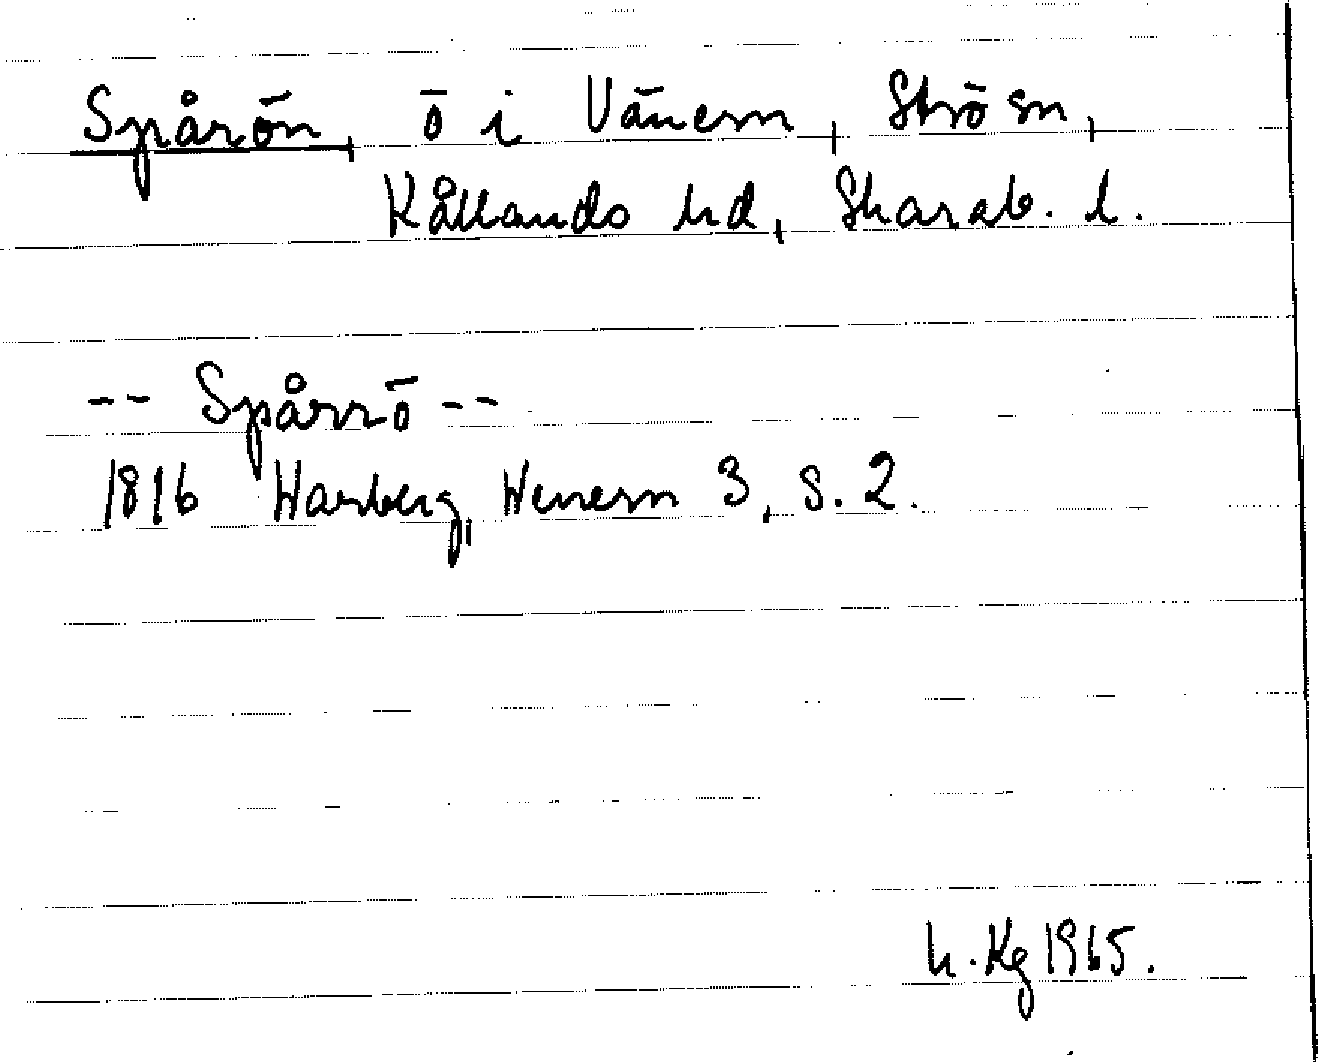 Spårön, ö i Vänern, Strö sn,
Kållands hd, Skarab. l.
-- Spårrö --
1816 Warberg, Wenern 3, s. 2.
h. Kg 1965.